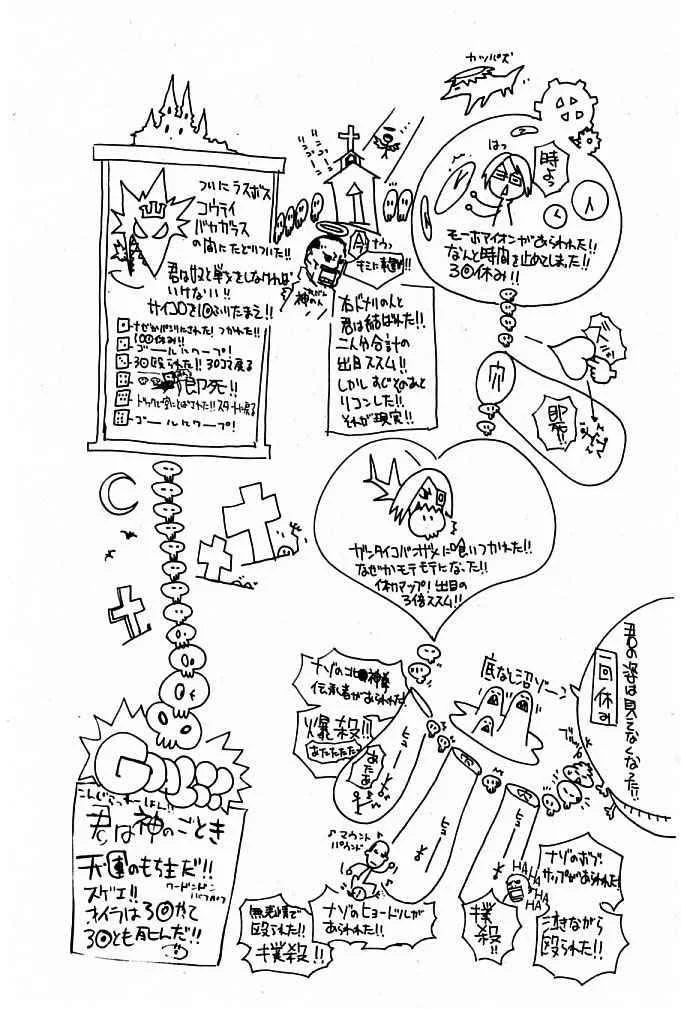 カッパズ
はっ
時よっ
モーホマイオンがあらわれた!!
なんと時間を止めてしまった!!
3回休み!!
ついにラスボス
コウテイ
バヤカラス
の間にたどりついた!!
君は奴と勝負をしなければ
いけない!!
サイコロを1回ふりたまえ!!
100回休み!!
ゴールにワープ!
3回殴られた!! 30コマ戻る
即死!!
ゴールにワープ!
神の人
右ドナリの人と
君は結ばれた!!
二人分合計の
出目ススム!!
しかしすぐそのあと
リコンした!!
それが現実!!
穴
即死!!
ガンタイコバンザメに喰いつかれた!!
なぜかモテモテになった!!
体力マップ! 出目の
3倍ススム!!
君の姿は見えなくなった!!
一回休み
底なし沼ゾーン
ナゾの北○神拳
伝承者があらわれた!
爆殺!!
あたたたたっ
あたあ
ヒューー
ヒューー
マウント
パウンド
ナゾのヒョードルが
あらわれた!!
無表情で
殴られた!!
撲殺!!
撲殺!!
HAHAHAHA
ナゾのボブ
サップがあらわれた!
泣きながら
殴られた!!
GOAL
こんぐらっちゅれーしょん!!
君は神のごとき
天運のもち主だ!!
スゲエ!!
オイラは3回やて
3回とも死んだ!!